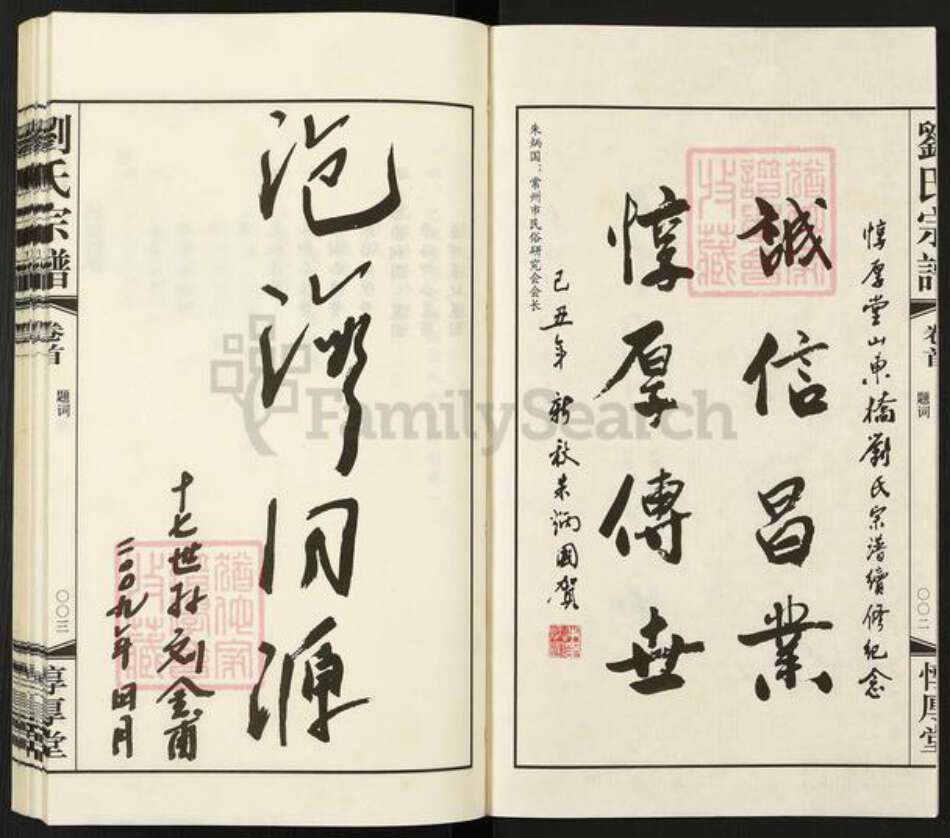 劉氏宗譜
卷首
题词
〇〇二
惇厚堂
惇厚堂山東橋劉氏宗譜續修紀念
誠信昌業
惇厚傳世
己丑年新秋朱炳國贺
朱炳国：常州市民俗研究会会长
同源
十七世孙刘金甫
二〇〇九年四月
劉氏宗譜
卷首
题词
〇〇三
惇厚堂
FamilySearch